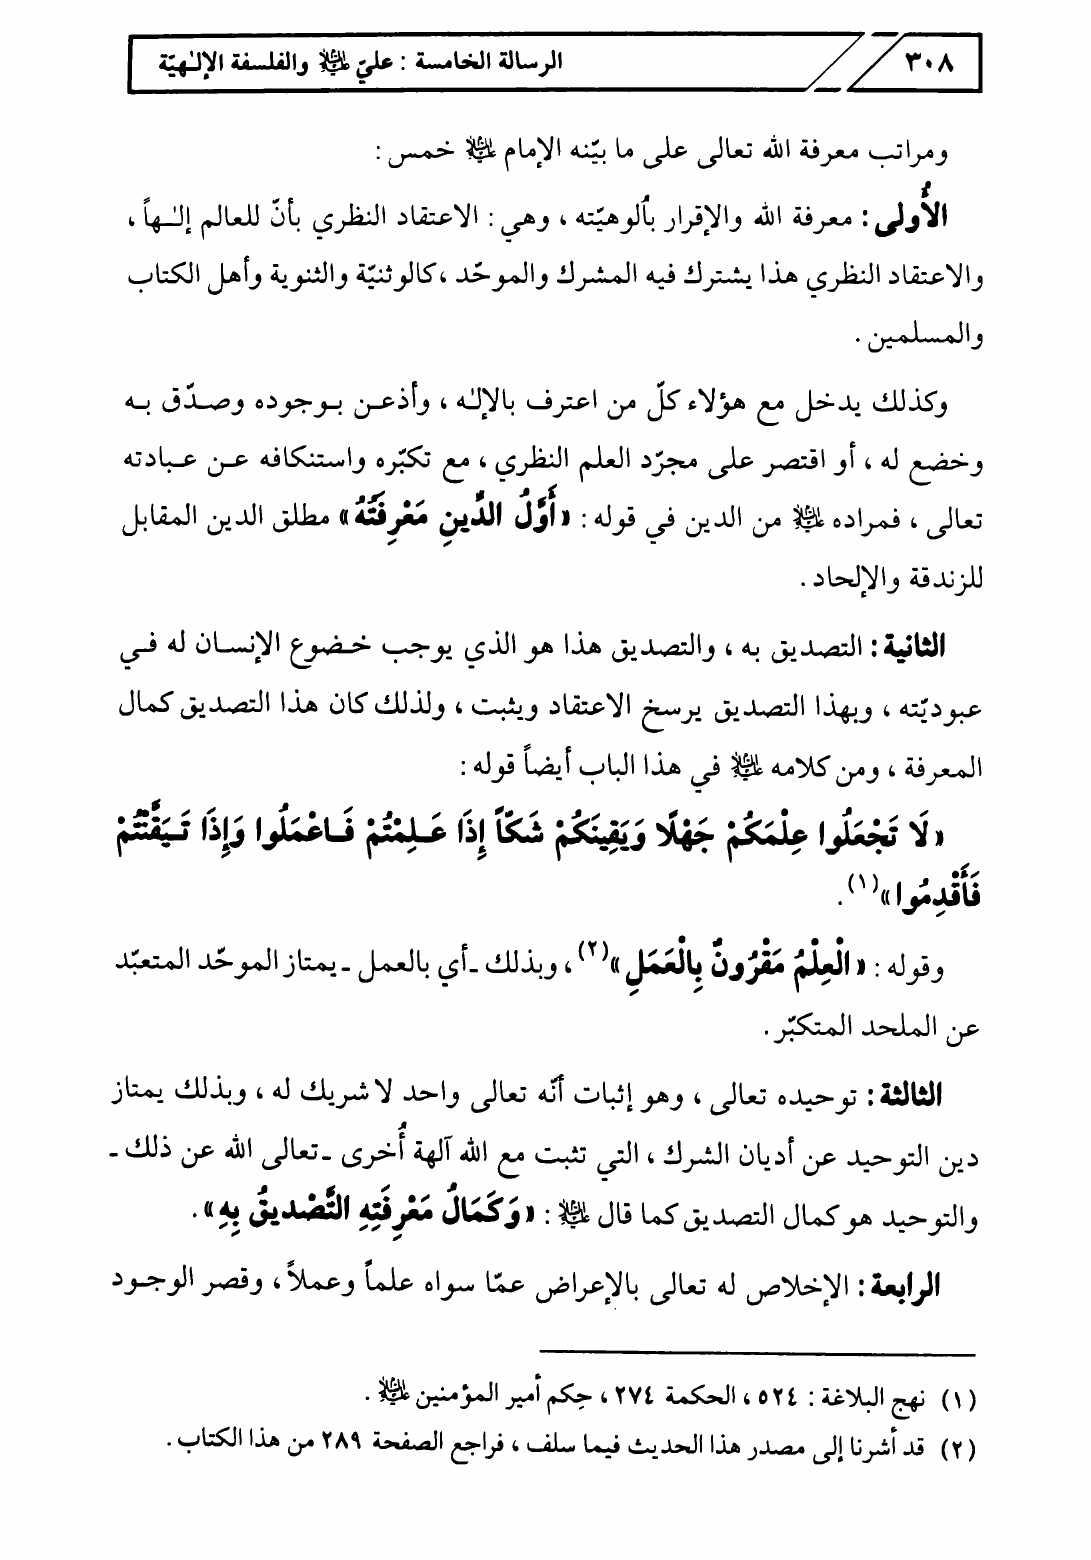 ٣٠٨
الرسالة الخامسة : عليّ عليه السلام والفلسفة الإلـٰهيّة
ومراتب معرفة الله تعالى على ما بيّنه الإمام عليه السلام خمس :
الأُولى : معرفة الله والإقرار بأُلوهيّته ، وهي : الاعتقاد النظري بأنّ للعالم إلـٰهاً ،
والاعتقاد النظري هذا يشترك فيه المشرك والموحّد ، كالوثنيّة والثنوية وأهل الكتاب
والمسلمين .
وكذلك يدخل مع هؤلاء كلّ من اعترف بالإلـٰه ، وأذعن بوجوده وصدّق به
وخضع له ، أو اقتصر على مجرّد العلم النظري ، مع تكبّره واستنكافه عن عبادته
تعالى ، فمراده عليه السلام من الدين في قوله : « أَوَّلُ الدِّينِ مَعْرِفَتُهُ » مطلق الدين المقابل
للزندقة والإلحاد .
الثانية : التصديق به ، والتصديق هذا هو الذي يوجب خضوع الإنسان له في
عبوديّته ، وبهذا التصديق يرسخ الاعتقاد ويثبت ، ولذلك كان هذا التصديق كمال
المعرفة ، ومن كلامه عليه السلام في هذا الباب أيضاً قوله :
« لَا تَجْعَلُوا عِلْمَكُمْ جَهْلًا وَيَقِينَكُمْ شَكّاً إِذَا عَلِمْتُمْ فَاعْمَلُوا وَإِذَا تَيَقَّنْتُمْ
فَأَقْدِمُوا »(١) .
وقوله : « الْعِلْمُ مَقْرُونٌ بِالْعَمَلِ »(٢) ، وبذلك ـ أي بالعمل ـ يمتاز الموحّد المتعبّد
عن الملحد المتكبّر .
الثالثة : توحيده تعالى ، وهو إثبات أنّه تعالى واحد لا شريك له ، وبذلك يمتاز
دين التوحيد عن أديان الشرك ، التي تثبت مع الله آلهة أُخرى ـ تعالى الله عن ذلك ـ
والتوحيد هو كمال التصديق كما قال عليه السلام : « وَكَمَالُ مَعْرِفَتِهِ التَّصْدِيقُ بِهِ » .
الرابعة : الإخلاص له تعالى بالإعراض عمّا سواه علماً وعملاً ، وقصر الوجود
(١) نهج البلاغة : ٥٢٤ ، الحكمة ٢٧٤ ، حِكم أمير المؤمنين عليه السلام .
(٢) قد أشرنا إلى مصدر هذا الحديث فيما سلف ، فراجع الصفحة ٢٨٩ من هذا الكتاب .